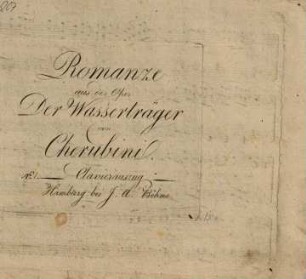 Romanze
aus der Oper
Der Wasserträger
von
Cherubini.
No. 1. Clavierauszug
Hamburg bei J. A. Böhme.